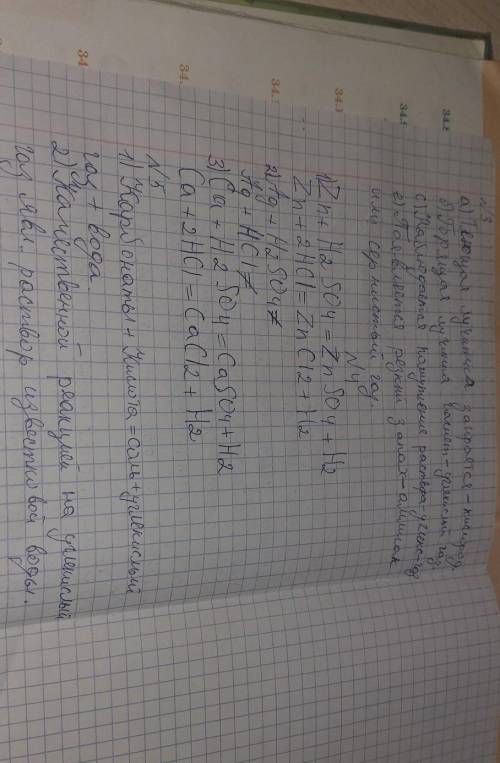 №3
а) Тлеющая лучинка загорается - кислород
б) Горящая лучинка гаснет - углекислый газ
с) Наблюдается помутнение раствора - углекисл. газ
е) Появляется резкий запах - аммиак
или сернистый газ.
№4
1) Zn + H2SO4 = ZnSO4 + H2
Zn + 2HCl = ZnCl2 + H2
2) Ag + H2SO4 ≠
Ag + HCl ≠
3) Ca + H2SO4 = CaSO4 + H2
Ca + 2HCl = CaCl2 + H2
№5
1) Карбонаты + Кислота = соль + углекислый
газ + вода
2) Качественной реакцией на углекислый
газ явл. раствор известковой воды.
34.
34
34.
34.1
34.1